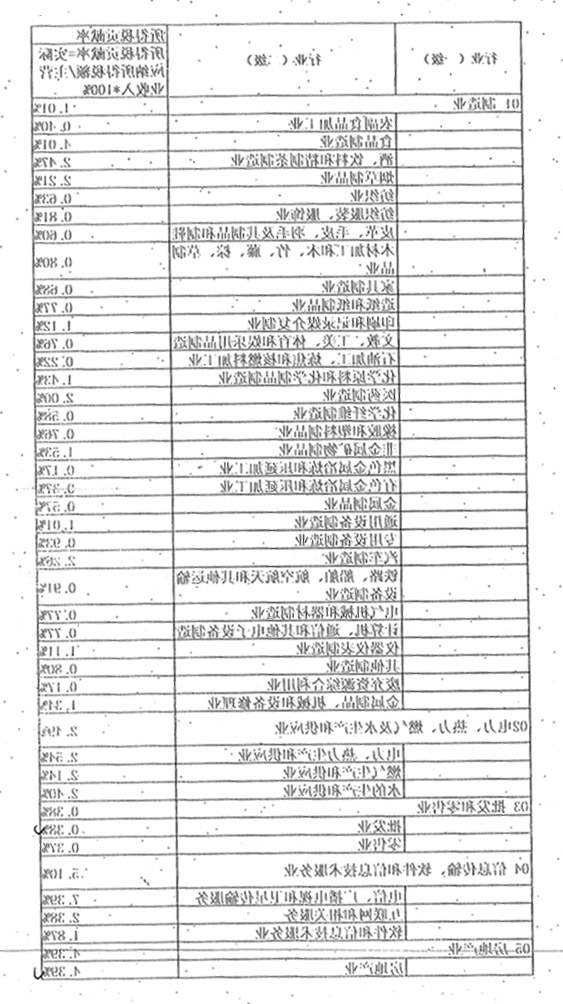 行业（一级） 行业（二级） 所得税贡献率
所得税贡献率=实际
应纳所得税额/主营
业收入*100%
01 制造业 1.01%
农副食品加工业 0.40%
食品制造业 4.01%
酒、饮料和精制茶制造业 2.47%
烟草制品业 2.21%
纺织业 0.63%
纺织服装、服饰业 0.81%
皮革、毛皮、羽毛及其制品和制鞋 0.60%
木材加工和木、竹、藤、棕、草制
品业 0.80%
家具制造业 0.68%
造纸和纸制品业 0.77%
印刷和记录媒介复制业 1.12%
文教、工美、体育和娱乐用品制造 0.76%
石油加工、炼焦和核燃料加工业 0.22%
化学原料和化学制品制造业 1.43%
医药制造业 2.00%
化学纤维制造业 0.58%
橡胶和塑料制品业 0.76%
非金属矿物制品业 1.53%
黑色金属冶炼和压延加工业 0.17%
有色金属冶炼和压延加工业 0.37%
金属制品业 0.57%
通用设备制造业 1.01%
专用设备制造业 0.93%
汽车制造业 2.26%
铁路、船舶、航空航天和其他运输
设备制造业 0.91%
电气机械和器材制造业 0.77%
计算机、通信和其他电子设备制造 0.77%
仪器仪表制造业 1.11%
其他制造业 0.80%
废弃资源综合利用业 0.17%
金属制品、机械和设备修理业 1.34%
02电力、热力、燃气及水生产和供应业 2.49%
电力、热力生产和供应业 2.54%
燃气生产和供应业 2.14%
水的生产和供应业 2.40%
03 批发和零售业 0.38%
批发业 0.38%
零售业 0.37%
04 信息传输、软件和信息技术服务业 5.10%
电信、广播电视和卫星传输服务 7.39%
互联网和相关服务 2.38%
软件和信息技术服务业 1.87%
05 房地产业 4.39%
房地产业 4.39%